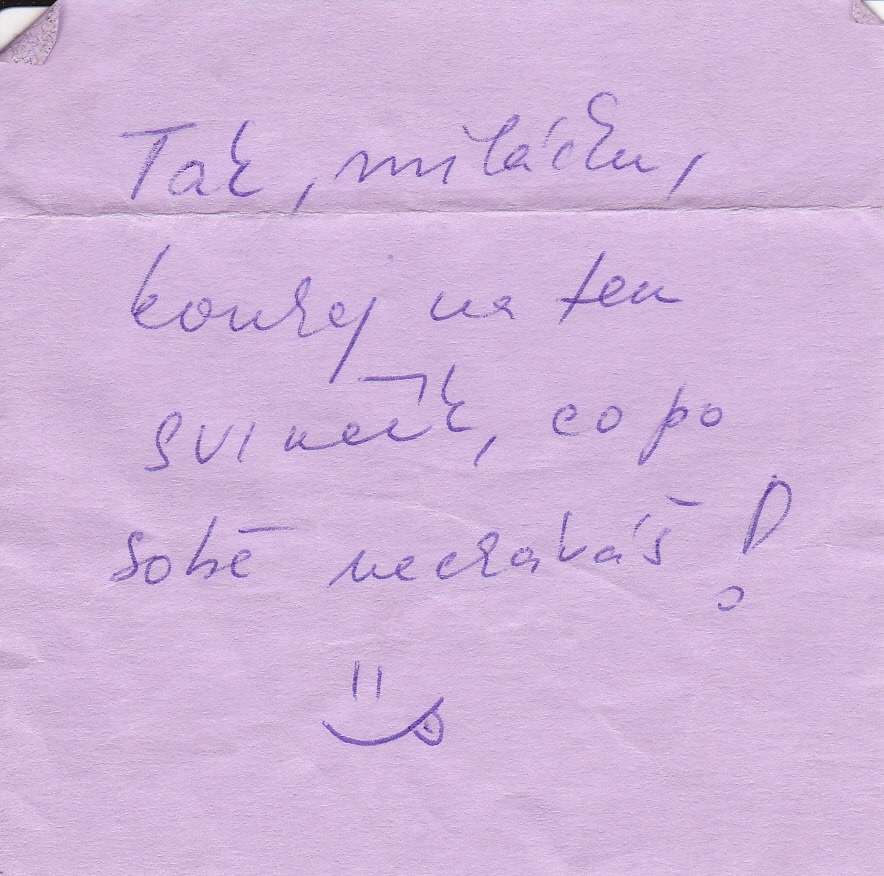 Tak, miláčku,
koukej na ten
svinčík, co po
sobě necháváš!